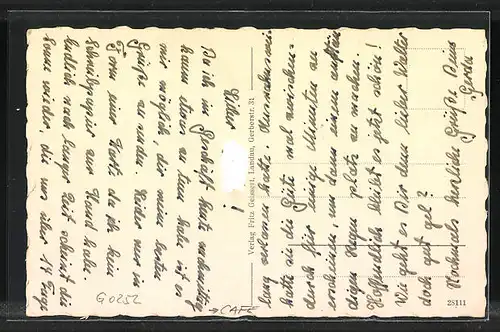 Lieber !
Da ich im Geschäft heute nachmittag
kaum etwas zu tun habe ist es
mir möglich, dir meine besten
Grüße zu senden. Leider nur in
Form einer Karte da ich kein
Schreibpapier zur Hand habe.
Endlich nach langer Zeit scheint die
Sonne wieder, die uns über 14 Tage
lang verlassen hatte.
hatte sie die Güte mal zwischen-
durch für einige Minuten zu
erscheinen, um dann einem
digen Regen platz zu machen.
Hoffentlich bleibt es jetzt schön!
Wie geht es Dir denn lieber Walter
doch gut gel?
Nochmals herzliche Grüße Dein
Verlag Fritz Geissert, Landau, Gerberstr. 31
28111
G0252
→ CAFE